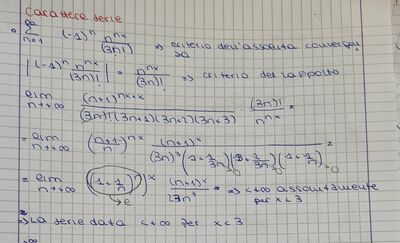 Carattere serie
∞ Σ n=1 (-1)^n n^{nx} / (3n)! => criterio dell'assoluta convergenza
|(-1)^n n^{nx} / (3n)!| = n^{nx} / (3n)! => criterio del rapporto
lim n→+∞ (n+1)^{nx+x} / (3n)!(3n+1)(3n+2)(3n+3) · (3n)! / n^{nx} =
= lim n→+∞ ((n+1)/n)^{nx} (n+1)^x / (3n)^3 (1+1/3n)(1+2/3n)(1+1/n) =
→0 →0 →0
= lim n→+∞ [(1+1/n)^n]^x (n+1)^x / 27n^3 => <+∞ assolutamente
→e per x<3
=> La serie data <+∞ per x<3